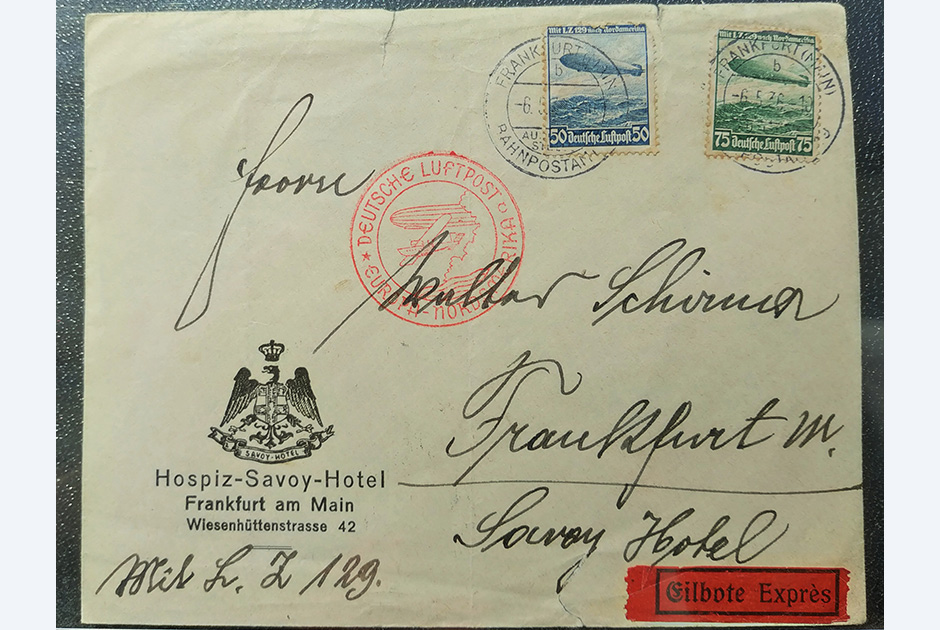 Mit LZ 129 nach Nordamerika
50 Deutsche Luftpost 50
Mit LZ 129 nach Nordamerika
75 Deutsche Luftpost 75
FRANKFURT (MAIN)
b
-6.5.
BAHNPOSTAMT
FRANKFURT (MAIN)
b
-6.5.36.
DEUTSCHE LUFTPOST
EUROPA-NORDAMERIKA
Herrn
Walter Schirmer
Frankfurt M.
Savoy Hotel
SAVOY-HOTEL
Hospiz-Savoy-Hotel
Frankfurt am Main
Wiesenhüttenstrasse 42
Mit L. Z 129.
Eilbote Exprès